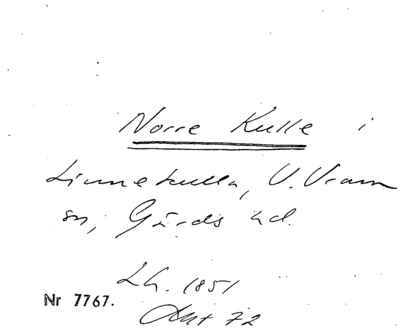 Norre Kulle i
Linnekulla, V. Vram
sn, Gärds hd.
Lh. 1851
Nr 7767.
Avt 72